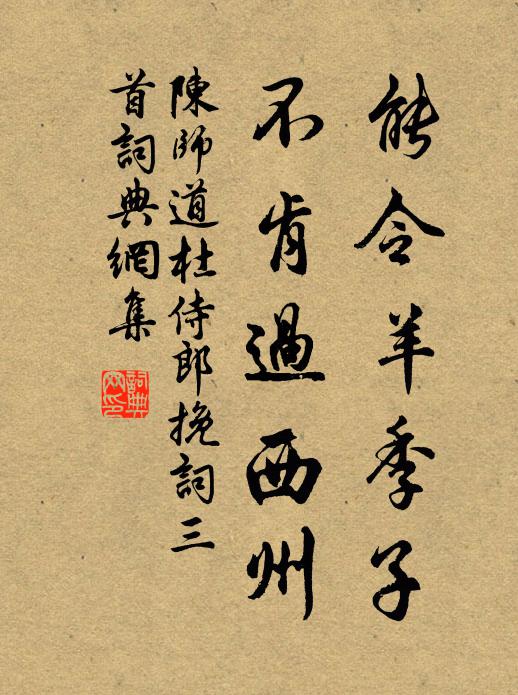 能令羊季子
不肯過西州
陳師道杜侍郎挽詞三
首詞典網集
詞典